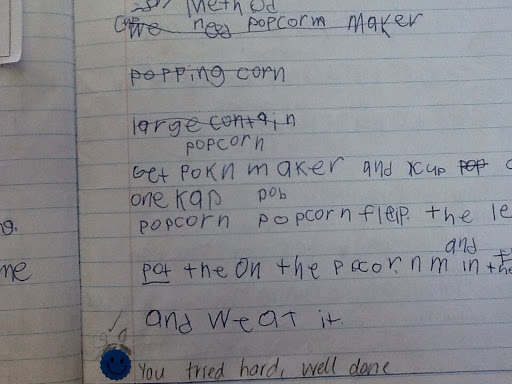 Method
We need popcorm maker
popping corn
large contain
popcorn
Get pokn maker and kup pop
one kap pob
popcorn popcorn flep. the le
g.
and
me
pot the on the pocor. n m in the
and we at it.
You tried hard, well done